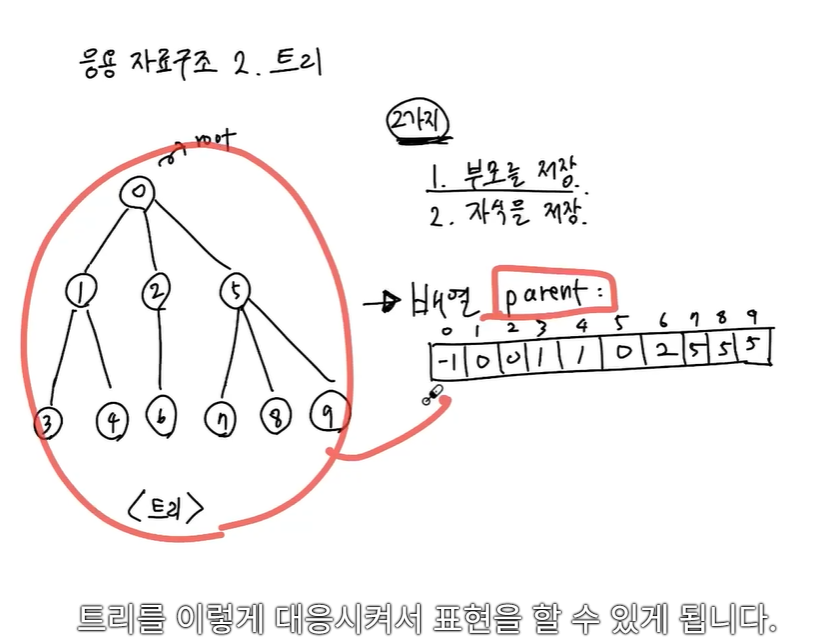 응용 자료구조 2. 트리
root
0
1 2 5
3 4 6 7 8 9
<트리>
2가지
1. 부모를 저장.
2. 자식을 저장.
배열 parent:
0 1 2 3 4 5 6 7 8 9
-1 0 0 1 1 0 2 5 5 5
트리를 이렇게 대응시켜서 표현을 할 수 있게 됩니다.